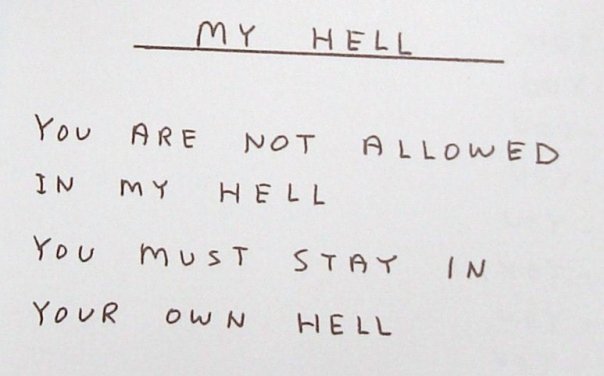 MY HELL
YOU ARE NOT ALLOWED
IN MY HELL
YOU MUST STAY IN
YOUR OWN HELL